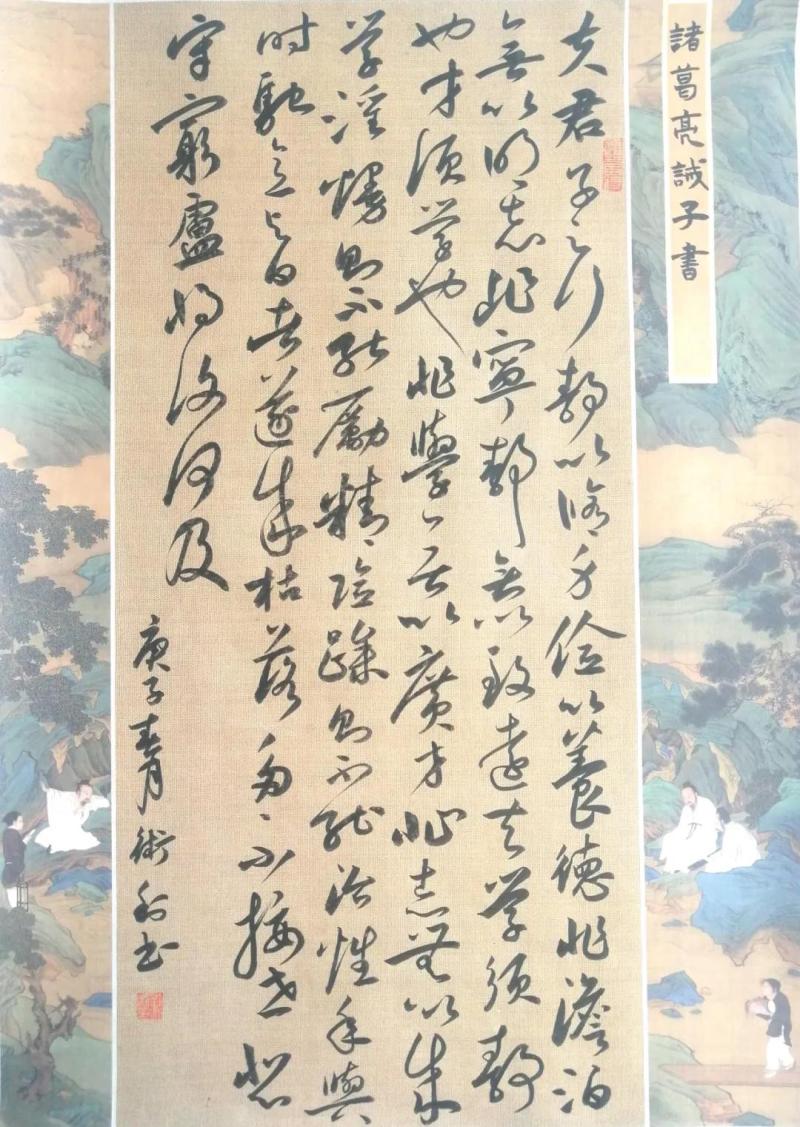 諸葛亮誡子書
夫君子之行静以脩身儉以養德非澹泊
無以明志非寧静無以致遠夫学須静
也才須学也非學無以廣才非志無以成
学淫慢則不能勵精險躁則不能治性年與
时馳意与日去遂成枯落多不接世悲
守窮盧将復何及
庚子春月術书